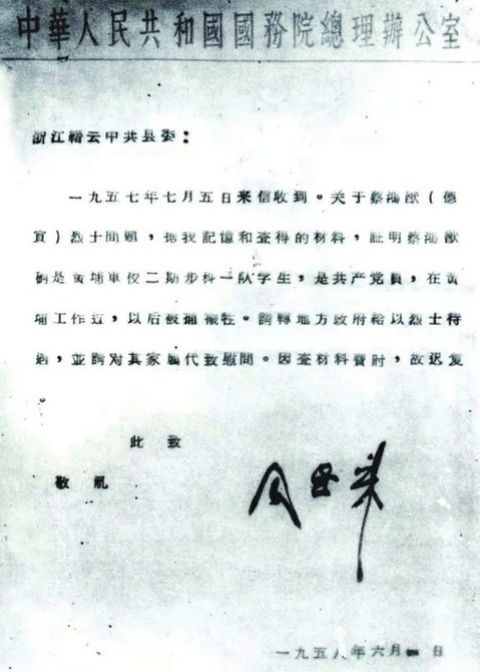 中華人民共和國國務院總理辦公室
浙江缙云中共县委：
一九五七年七月五日来信收到。关于蔡鴻猷（德
宣）烈士問題，据我記憶和查得的材料，証明蔡鴻猷
确是黃埔軍校二期步科一队学生，是共产党員，在黃
埔工作过，以后被捕犧牲。請轉地方政府給以烈士待
遇，並請对其家屬代致慰問。因查材料費时，故迟复
。
此致
敬礼
周恩来
一九五八年六月 日